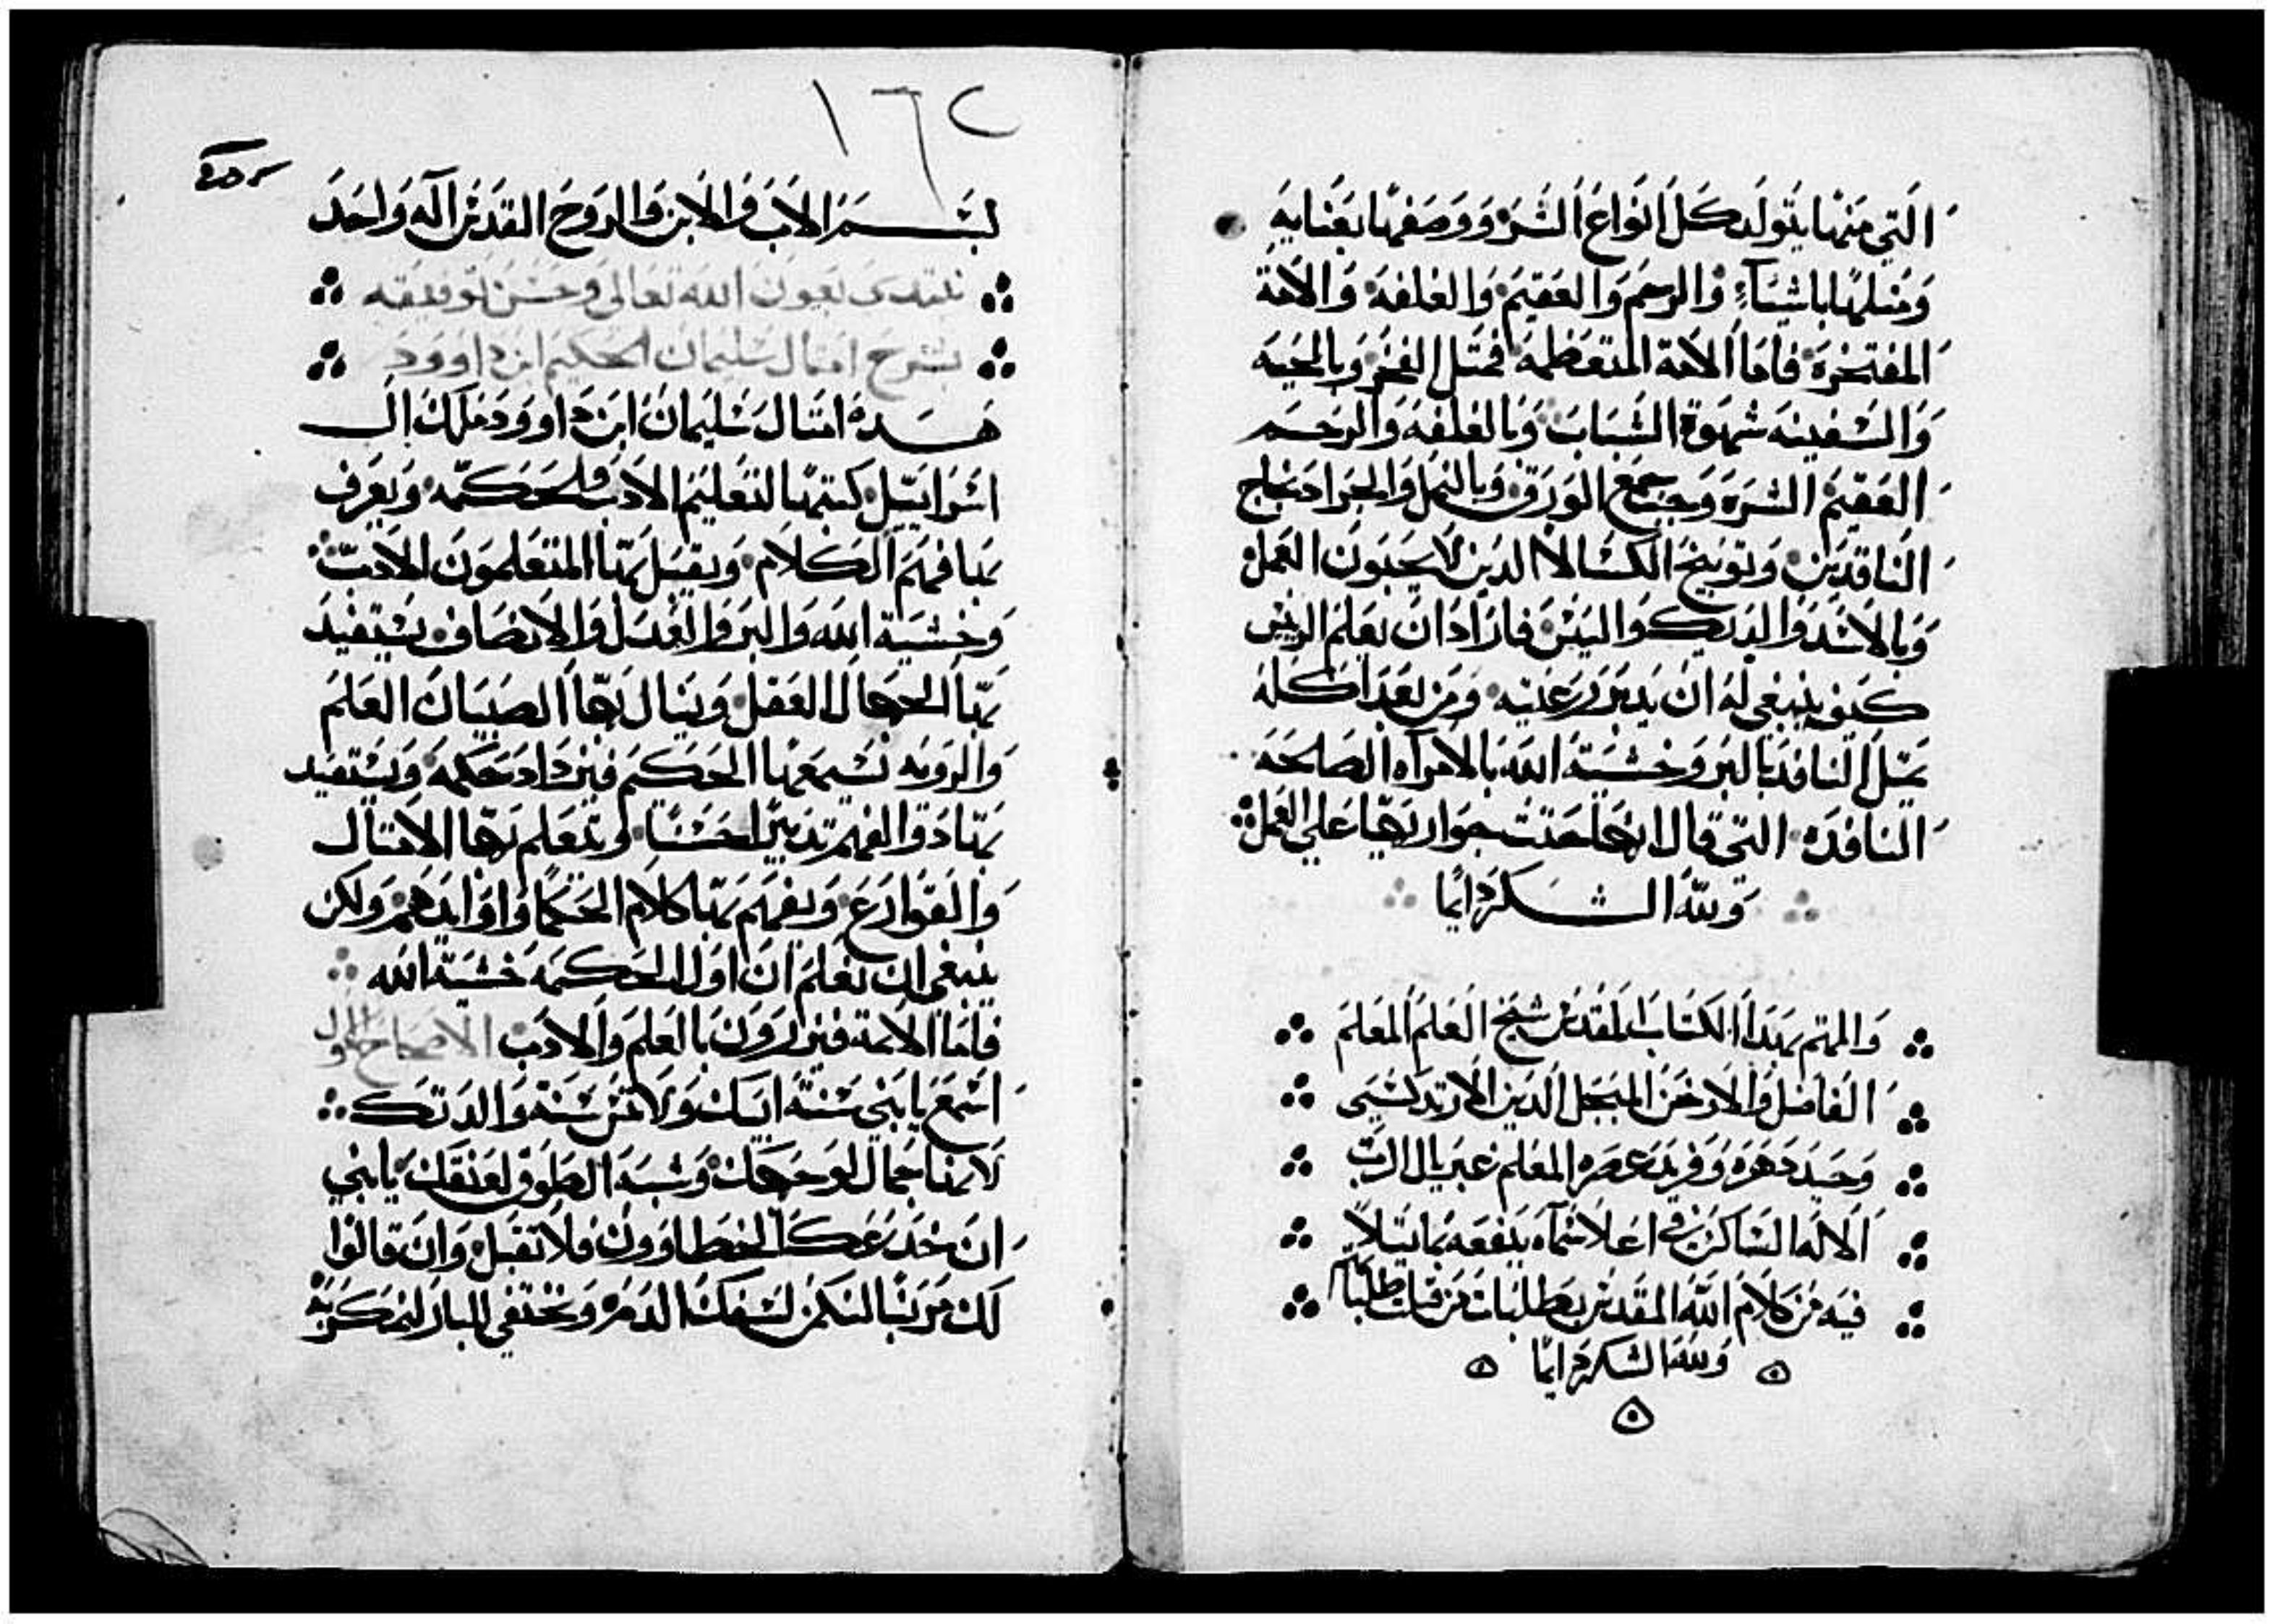 التي منها يتولد كل انواع الشره ووصفها بعنايه
ومثلها باشياء والرحم والعقيم والعلقة والامة
المفتخرة فاما الامة المتعظمة فمثل الفخر وبالحيه
والسفينه شهوة الشباب وبالعلقه والرحم
العقيم الشره وجمع الورق وبالنمل والجراد نجاح
الناقدين وتوبيخ الكسالا الدين لا يحبون العمل
وبالاسد والديك والتيس فاراد ان يعلم الريس
كيف ينبغي له ان يدبر رعيته ومن بعد اكله
يمثل النافد بالبر وخشية الله بالامراه الصالحه
النافده التي قال انها حتت جوارها علي العمل
ولله الشكر دايما
والمهتم بهدا الكتاب المقدس شيخ العلم المعلم
الفاضل والارخن المبجل الدين الارتدكسي
وحيد دهره وفريد عصره المعلم غبريال الرب
الاله الساكن في اعلا سماه ينفعه بما يتلا
فيه من كلام الله المقدس بعطلبات من قبلت طلباتهم
ولله الشكر دايما
١٦٢
بسم الاب والابن والروح القدس اله واحد
نبتدى بعون الله تعالى وحسن توفيقه
بشرح امثال سليمان الحكيم ابن داوود
هده امثال سليمان ابن داوود ملك ال
اسراييل كتبها لتعليم الادب والحكمه ويعرف
بها فهم الكلام ويقبل بها المتعلمون الادب
وخشية الله والبر والعدل والانصاف يستفيد
بها الجهال العقل وينال بها الصبيان العلم
والرويه تسمعها الحكم فيزداد حكمه ويستفيد
بها دوا الفهم تدبيرا حسنا ويتعلم بها الامثال
والقوارع ويفهم بها كلام الحكما واوابدهم ولكن
ينبغي ان نعلم ان اول الحكمه خشية الله
فاما الاثمة فيزدرون بالعلم والادب الاصحاح الاول
اسمع يابني سنة ابيك ولا تنس سنة والدتك
لانها جمال لوجهك وشبه الطوق لعنقك يابني
ان خدعك الخطاوون فلا تقبل وان قالوا
لك مر بنا لنكمن لسفك الدم ونختفي للبار لنمكر به